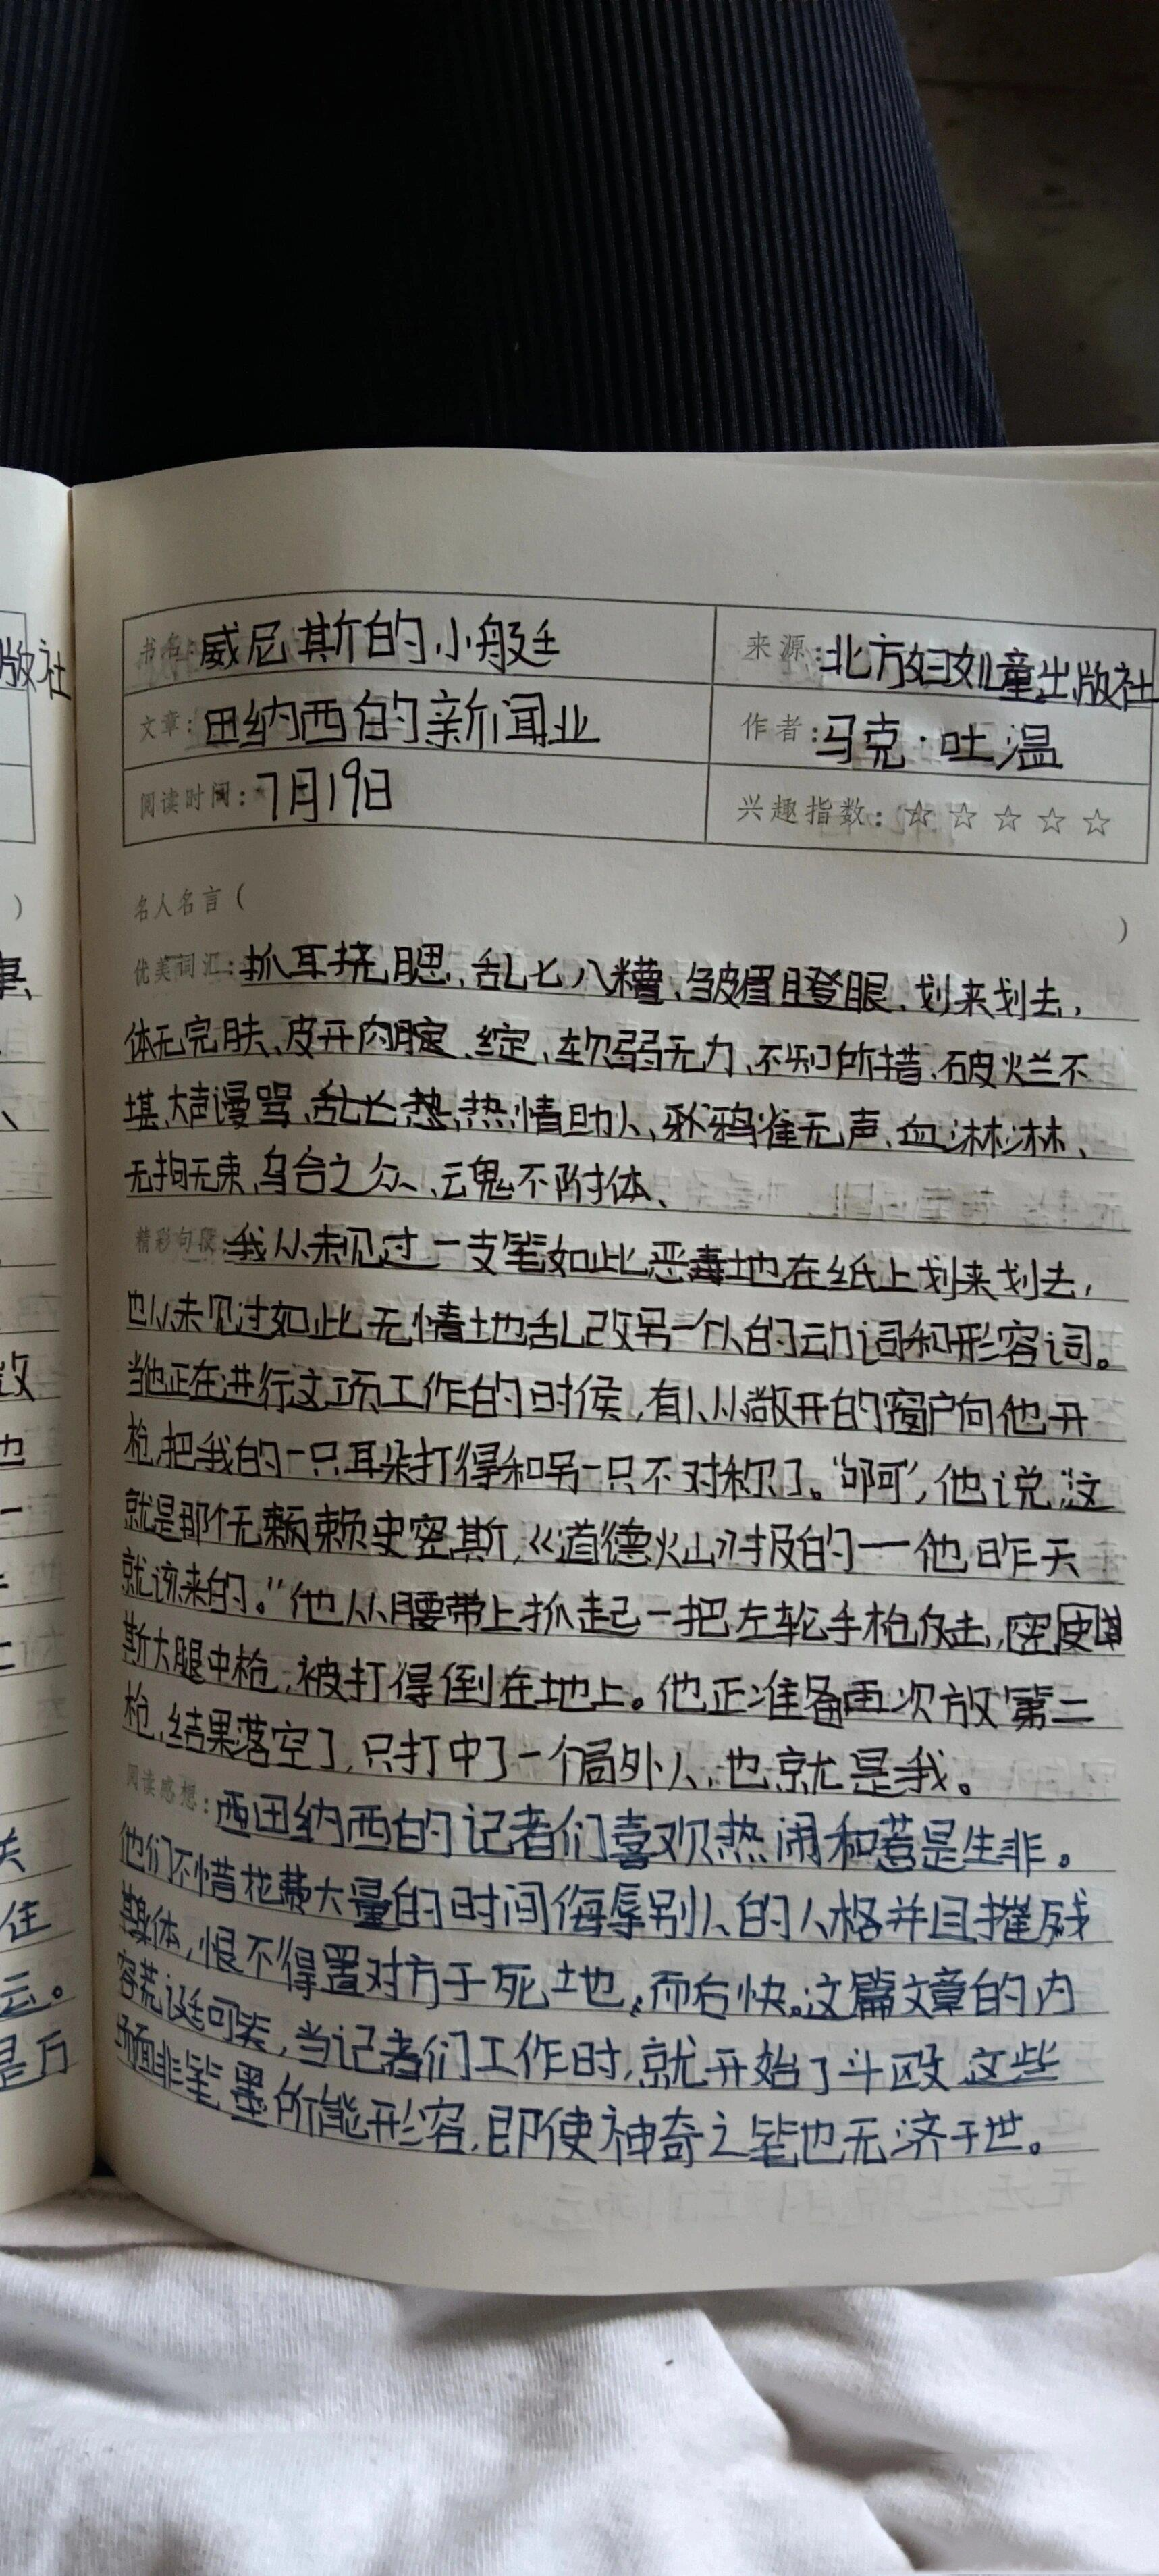 版社
书名：威尼斯的小艇 来源：北方妇女儿童出版社
文章：田纳西的新闻业 作者：马克·吐温
阅读时间：7月19日 兴趣指数：☆☆☆☆☆
名人名言（ ）
优美词汇：抓耳挠腮、乱七八糟、皱眉瞪眼、划来划去，
体无完肤、皮开肉腚、绽、软弱无力、不知所措、破烂不
堪、大声谩骂、乱七、热、热情助人、鸦雀无声、血淋淋、
无拘无束、乌合之众、云鬼不附体、
精彩句段：我从未见过一支笔如此恶毒地在纸上划来划去，
也从未见过如此无情土地乱改另一个人的动词和形容词。
当他正在进行这项工作的时侯，有人从敞开的窗户向他开
枪，把我的一只耳朵打得和另一只不对称了。“啊”，他说“这
就是那个无赖史密斯，《道德火山》报的一他昨天
就该来的。”他从腰带上抓起一把左轮手枪反击，史密
斯大腿中枪，被打得倒在地上。他正准备再次放第二
枪，结果落空了，只打中了一个局外人，也就是我。
阅读感想：西田纳西的记者们喜欢热闹和惹是生非。
他们不惜花费大量的时间侮辱别人的人格并且摧残
身体，恨不得置对方于死土地，而后快。这篇文章的内
容荒诞可笑，当记者们工作时，就开始了斗殴，这些
场面非笔墨所能形容，即使神奇之笔也无济于世。